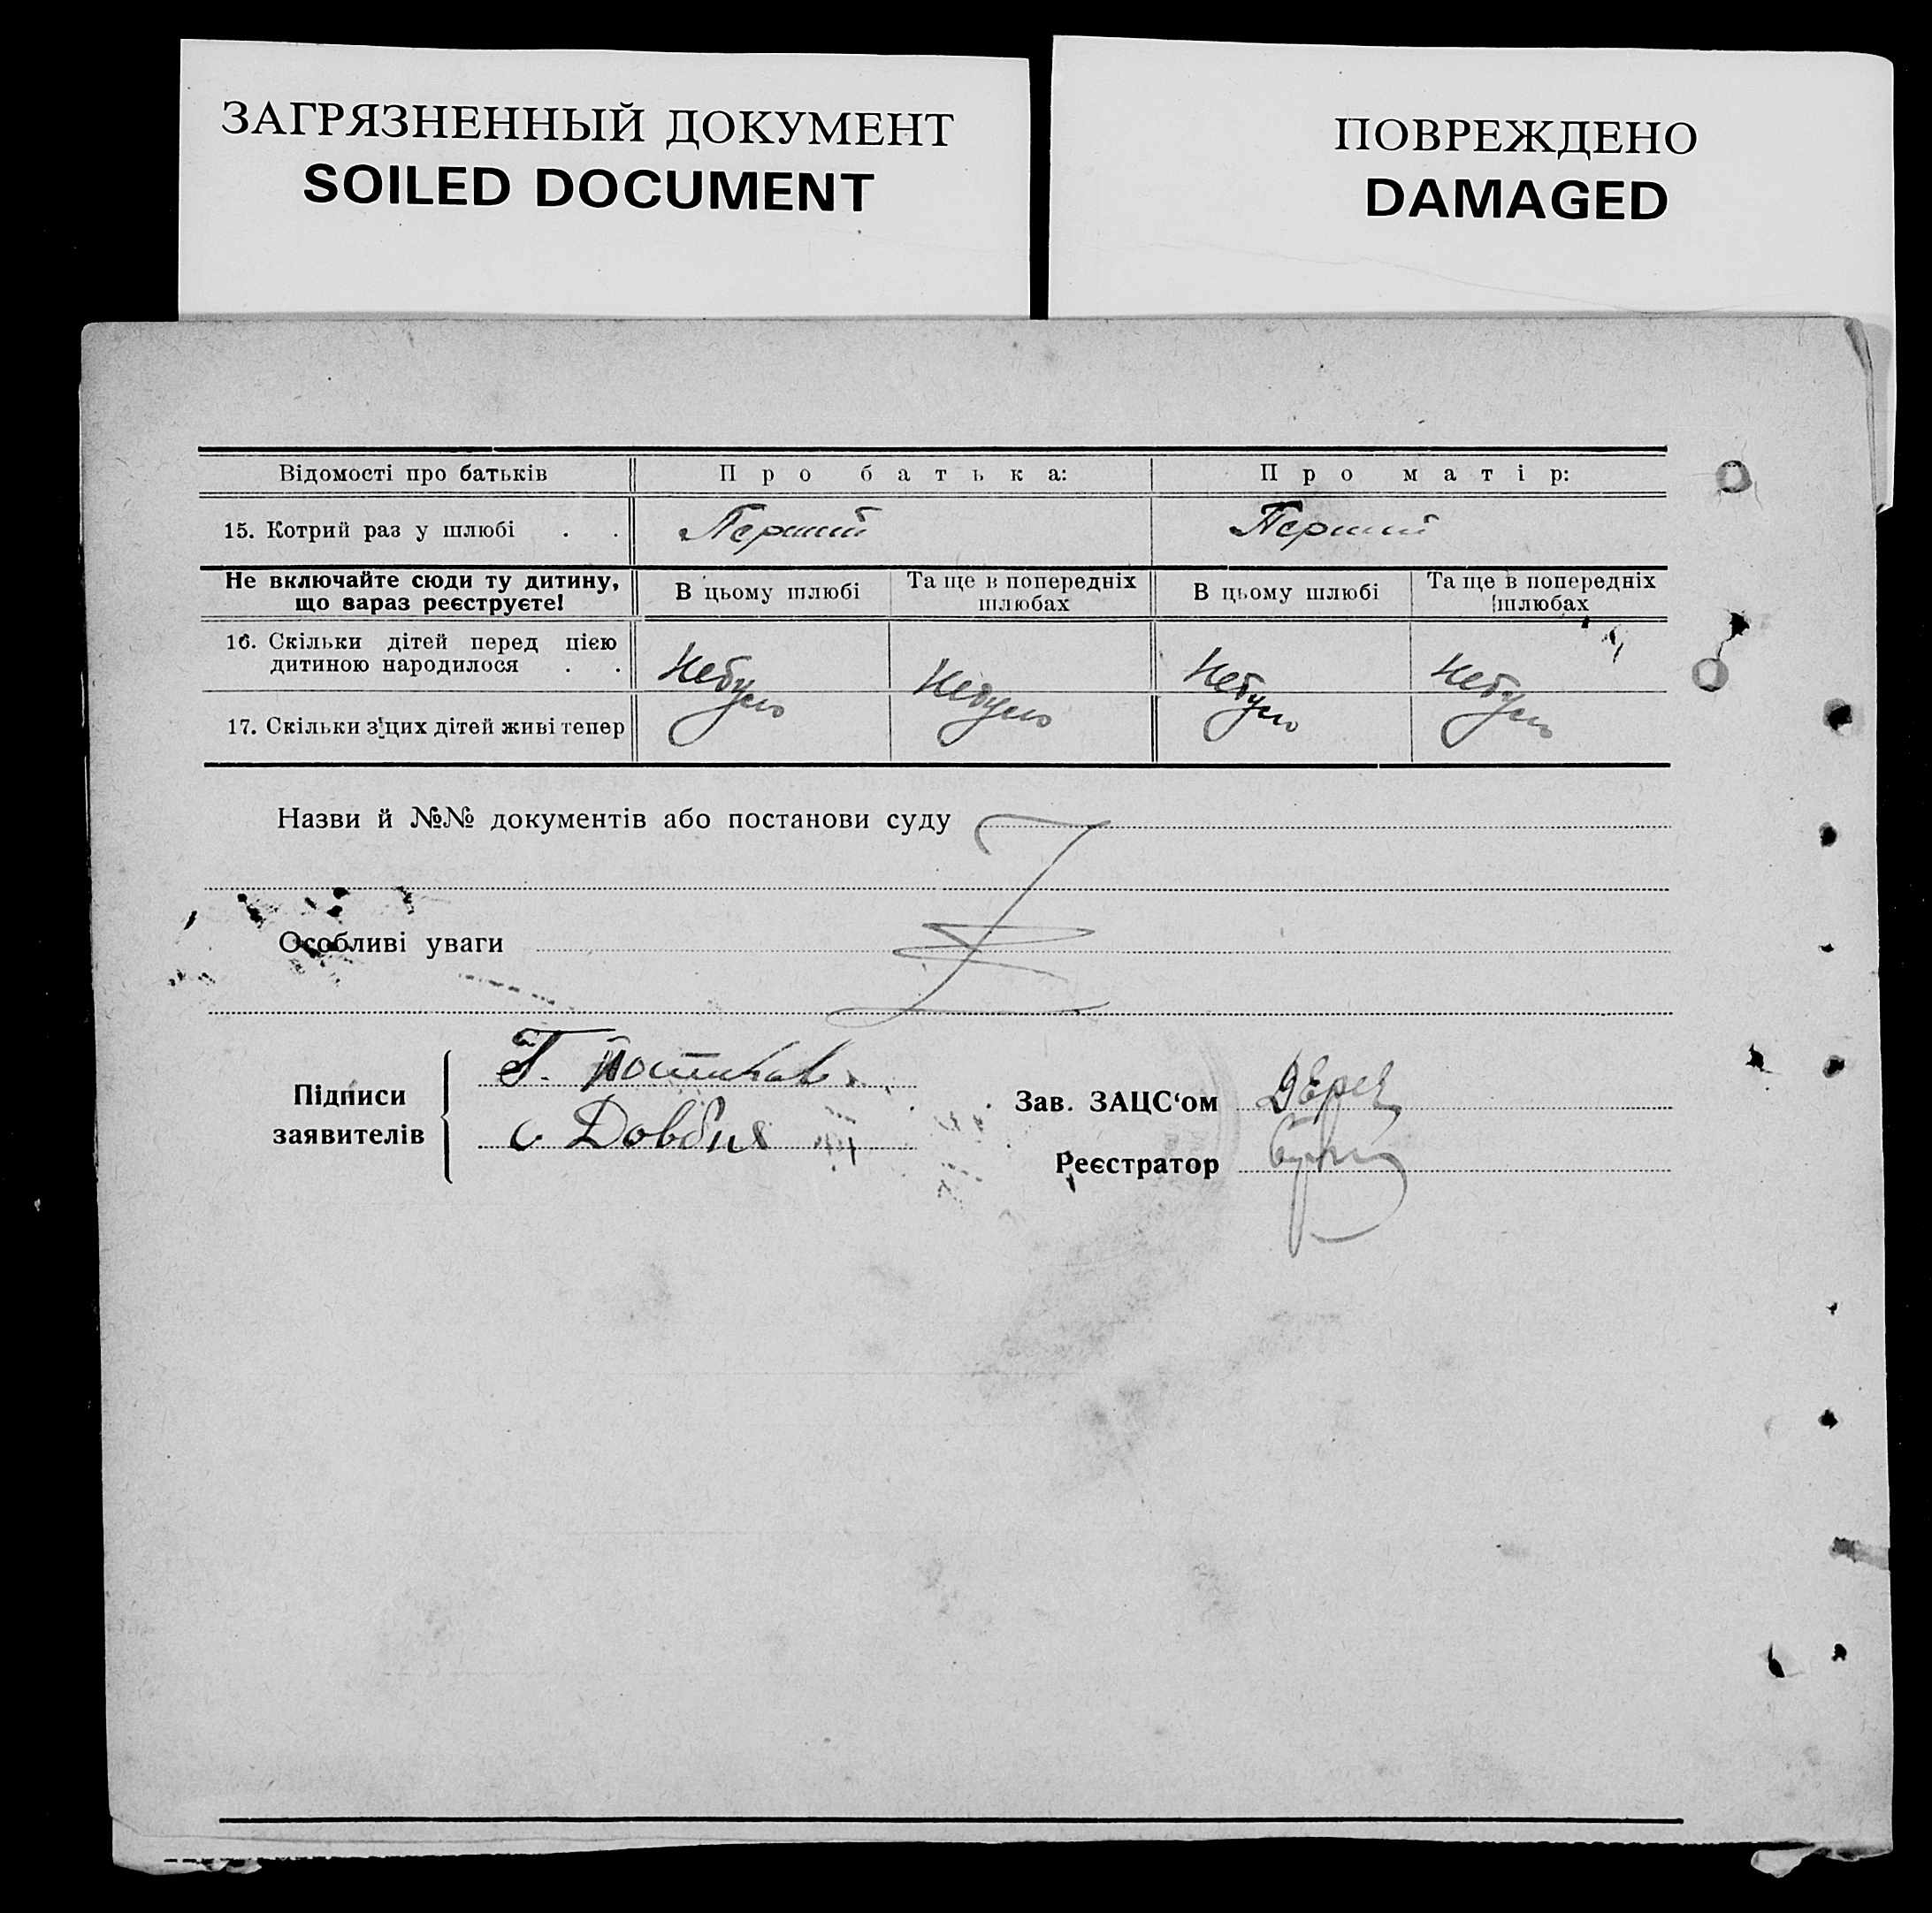 ЗАГРЯЗНЕННЫЙ ДОКУМЕНТ
SOILED DOCUMENT
ПОВРЕЖДЕНО
DAMAGED
Відомості про батьків Про батька: Про матір:
15. Котрий раз у шлюбі . . Перший Перший
Не включайте сюди ту дитину, що зараз реєструєте! В цьому шлюбі Та ще в попередніх шлюбах В цьому шлюбі Та ще в попередніх шлюбах
16. Скільки дітей перед цією
дитиною народилося . . Небуло Небуло Небуло Небуло
17. Скільки з цих дітей живі тепер
Назви й №№ документів або постанови суду
Особливі уваги
Підписи
заявителів
Г.
с Довбня
Зав. ЗАЦС‘ом
Реєстратор